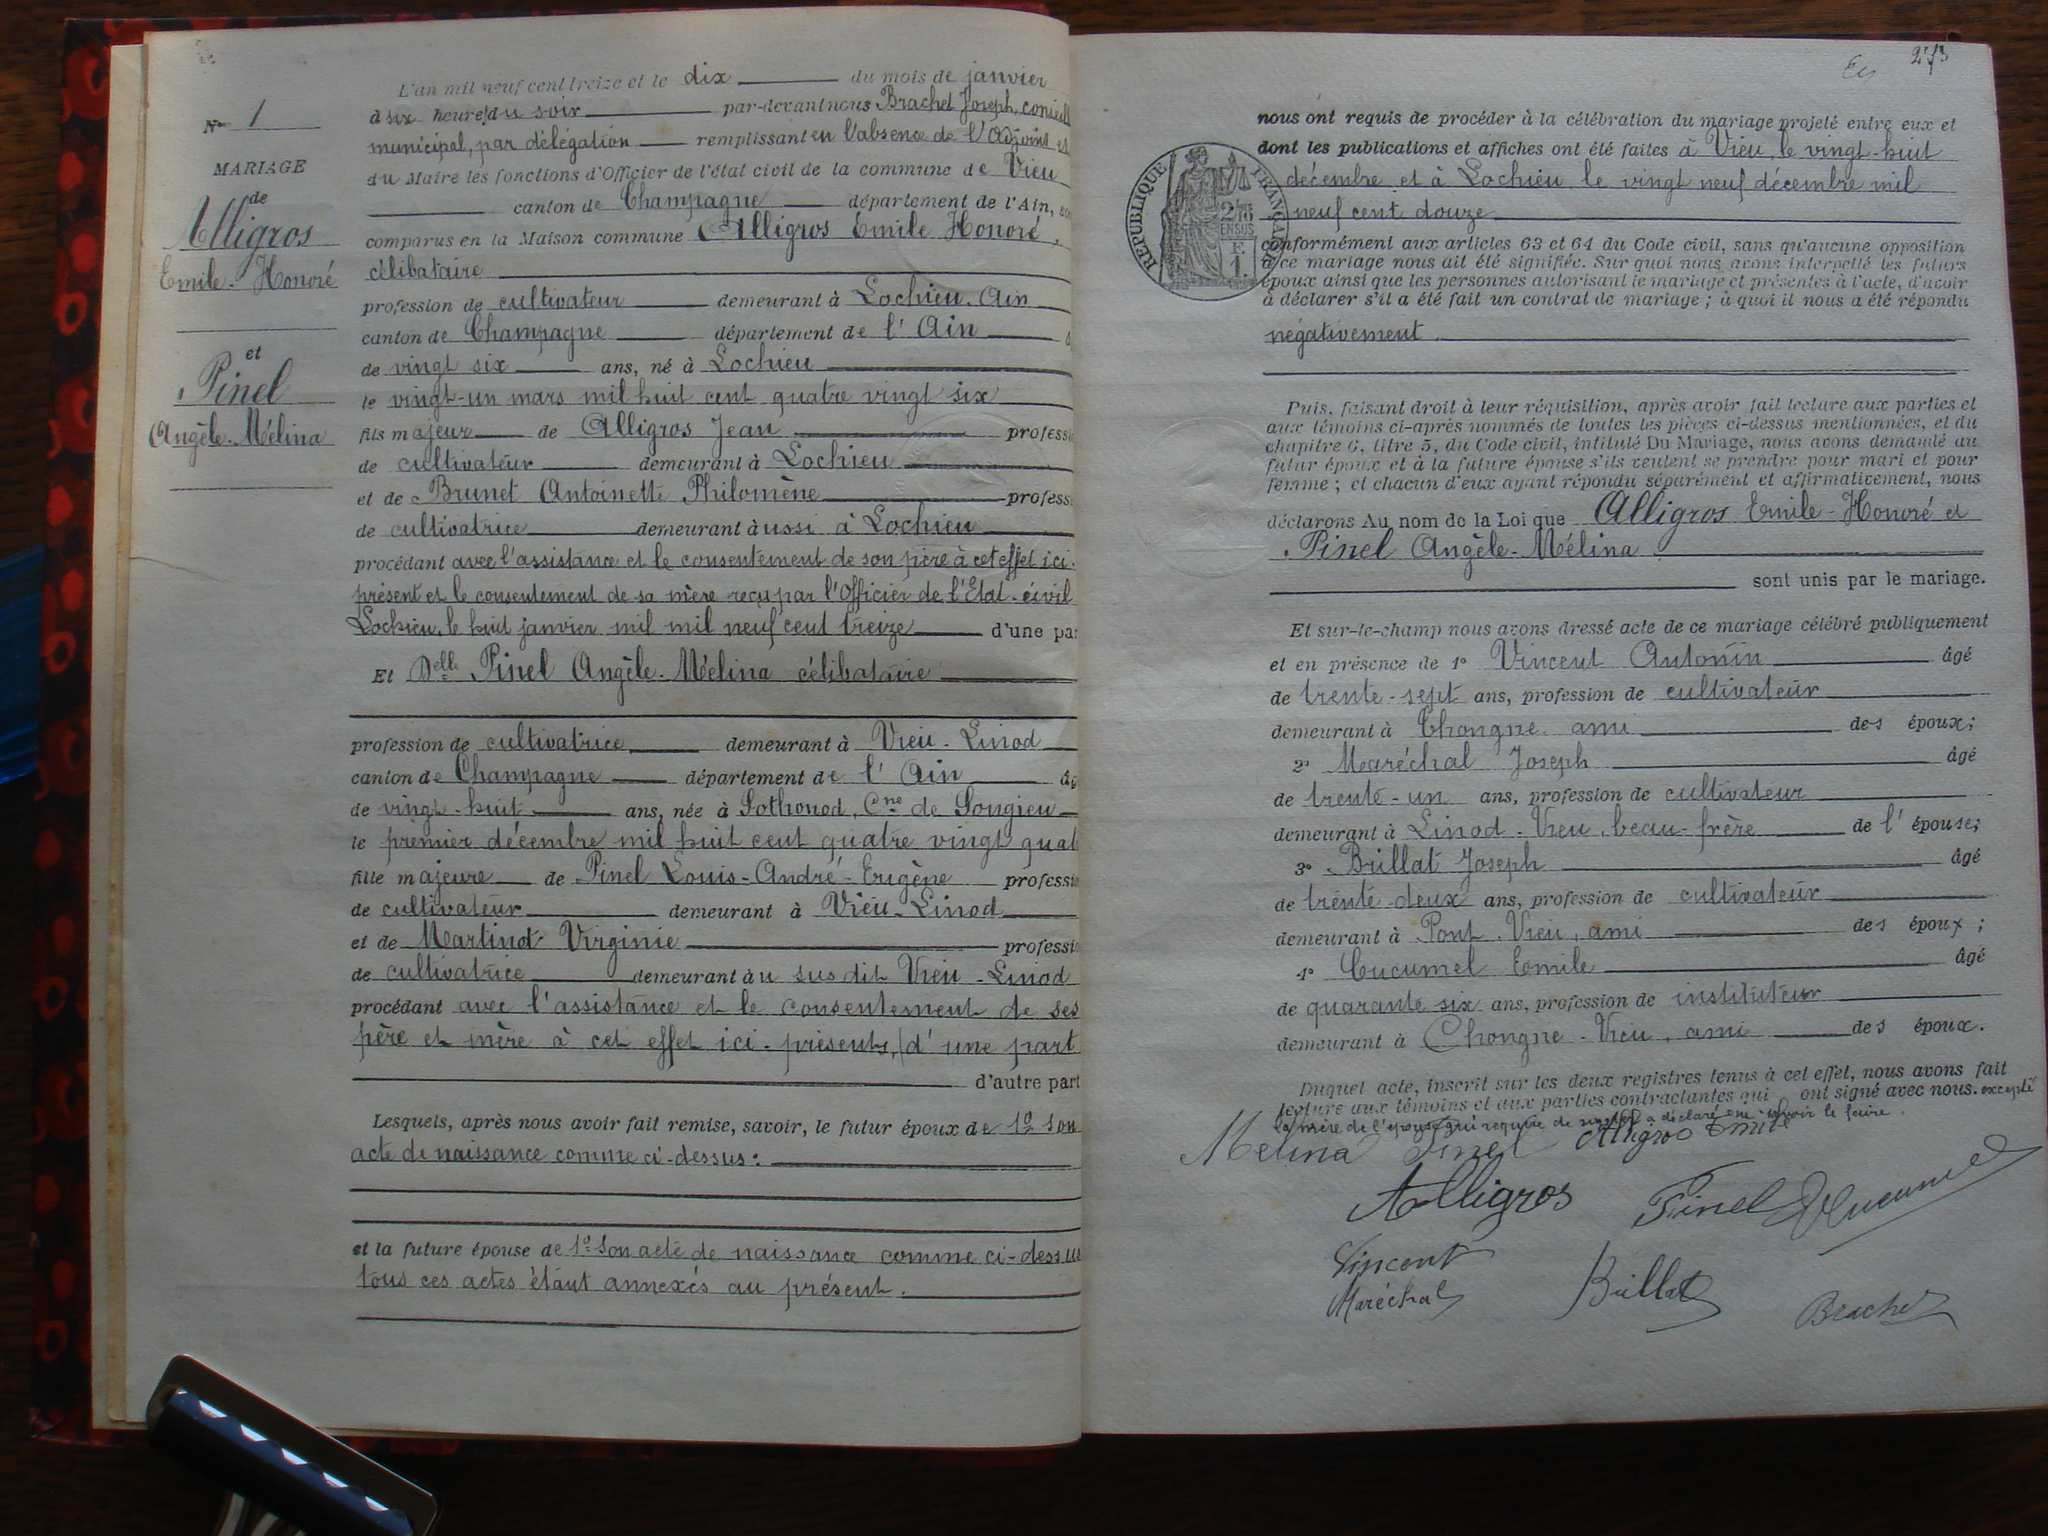 N° 1
MARIAGE
de
Alligros
Emile-Honoré
et
Pinel
Angèle-Mélina
L'an mil neuf cent treize et le dix du mois de janvier
à six heures du soir par-devant nous Brachet Joseph, conseill
municipal, par délégation remplissant en l'absence de l'Adjoint et
du Maire les fonctions d'Officier de l'état civil de la commune de Vieu
canton de Champagne département de l'Ain,
comparus en la Maison commune Alligros Emile Honoré,
célibataire
profession de cultivateur demeurant à Lochieu. Ain
canton de Champagne département de l'Ain
de vingt six ans, né à Lochieu
le vingt-un mars mil huit cent quatre vingt six
fils majeur de Alligros Jean professi
de cultivateur demeurant à Lochieu
et de Brunet Antoinette Philomène profess
de cultivatrice demeurant aussi à Lochieu
procédant avec l'assistance et le consentement de son père à cet effet ici-
présent et le consentement de sa mère reçu par l'Officier de l'Etat-civil
Lochieu, le huit janvier mil mil neuf cent treize d'une par
Et Delle Pinel Angèle-Mélina célibataire
profession de cultivatrice demeurant à Vieu-Linod
canton de Champagne département de l'Ain âg
de vingt-huit ans, née à Sothonod, Cne de Songieu
le premier décembre mil huit cent quatre vingt quat
fille majeure de Pinel Louis-André-Eugène professi
de cultivateur demeurant à Vieu-Linod
et de Martinot Virginie professi
de cultivatrice demeurant au susdit Vieu-Linod
procédant avec l'assistance et le consentement de ses
père et mère à cet effet ici-présents, d'une part
d'autre part
Lesquels, après nous avoir fait remise, savoir, le futur époux de 1° son
acte de naissance comme ci-dessus:
et la future épouse de 1° son acte de naissance comme ci-dessus
tous ces actes étant annexés au présent.
273
nous ont requis de procéder à la célébration du mariage projeté entre eux et
dont les publications et affiches ont été faites à Vieu, le vingt-huit
décembre et à Lochieu le vingt neuf décembre mil
neuf cent douze
RÉPUBLIQUE FRANÇAISE
2/10
EN SUS
F.
1.
conformément aux articles 63 et 64 du Code civil, sans qu'aucune opposition
à ce mariage nous ait été signifiée. Sur quoi nous avons interpellé les futurs
époux ainsi que les personnes autorisant le mariage et présentes à l'acte, d'avoir
à déclarer s'il a été fait un contrat de mariage; à quoi il nous a été répondu
négativement.
Puis, faisant droit à leur réquisition, après avoir fait lecture aux parties et
aux témoins ci-après nommés de toutes les pièces ci-dessus mentionnées, et du
chapitre 6, titre 5, du Code civil, intitulé Du Mariage, nous avons demandé au
futur époux et à la future épouse s'ils veulent se prendre pour mari et pour
femme; et chacun d'eux ayant répondu séparément et affirmativement, nous
déclarons Au nom de la Loi que Alligros Emile-Honoré et
Pinel Angèle-Mélina
sont unis par le mariage.
Et sur-le-champ nous avons dressé acte de ce mariage célébré publiquement
et en présence de 1° Vincent Antonin âgé
de trente-sept ans, profession de cultivateur
demeurant à Chongne. ami des époux;
2° Maréchal Joseph âgé
de trente-un ans, profession de cultivateur
demeurant à Linod-Vieu, beau-frère de l'épouse;
3° Brillat Joseph âgé
de trente-deux ans, profession de cultivateur
demeurant à Pont-Vieu, ami des époux;
4° Cucumel Emile âgé
de quarante six ans, profession de instituteur
demeurant à Chongne-Vieu, ami des époux.
Duquel acte, inscrit sur les deux registres tenus à cet effet, nous avons fait
lecture aux témoins et aux parties contractantes qui ont signé avec nous. excepté
la mère de l'épouse qui requise de signer a déclaré ne savoir le faire.
Mélina Pinel Alligros Emile
Alligros Pinel ECucumel
Vincent
Maréchal Brillat Brachet